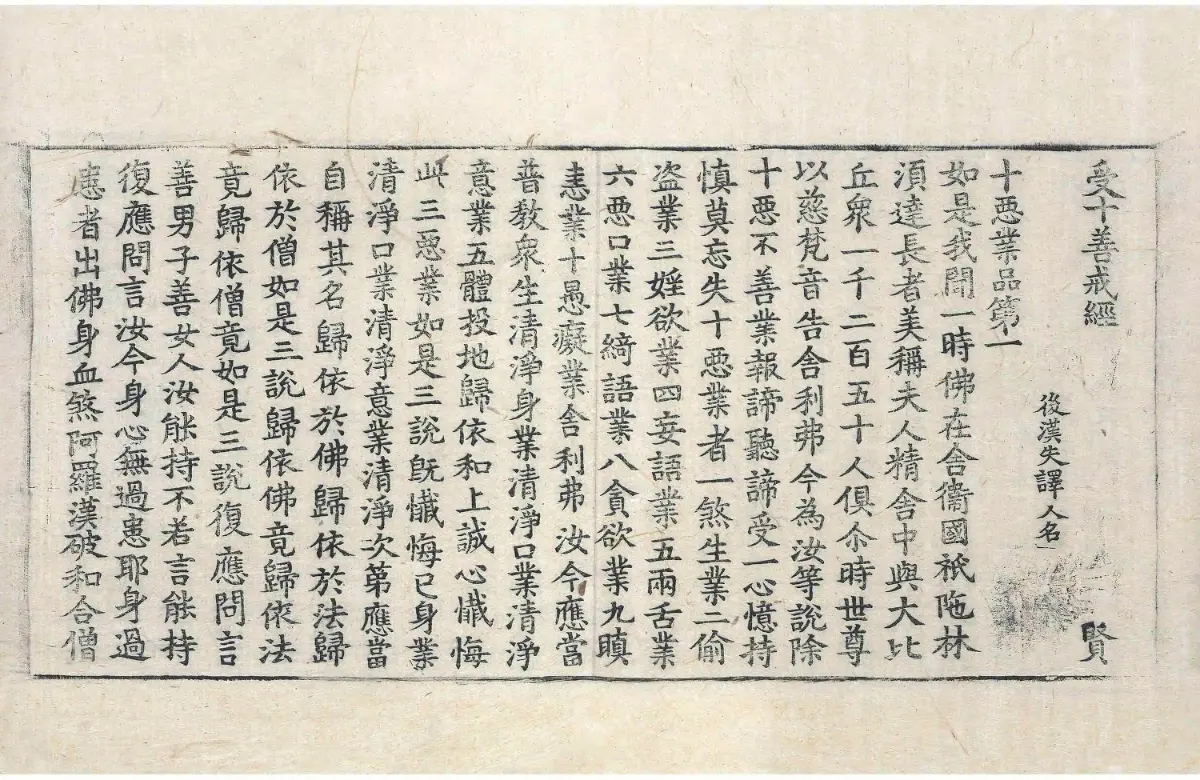 受十善戒經 賢
後漢失譯人名
十惡業品第一
如是我聞一時佛在舍衞國祇陁林
須達長者美稱夫人精舍中與大比
丘衆一千二百五十人俱尒時世尊
以慈梵音告舍利弗今為汝等說除
十惡不善業報諦聽諦受一心憶持
慎莫忘失十惡業者一煞生業二偷
盗業三婬欲業四妄語業五兩舌業
六惡口業七綺語業八貪欲業九瞋
恚業十愚癡業舍利弗汝今應當
普教衆生清淨身業清淨口業清淨
意業五體投地歸依和上誠心懺悔
此三惡業如是三說旣懺悔已身業
清淨口業清淨意業清淨次第應當
自稱其名歸依於佛歸依於法歸
依於僧如是三說歸依佛竟歸依法
竟歸依僧竟如是三說復應問言
善男子善女人汝能持不若言能持
復應問言汝今身心無過患耶身過
患者出佛身血煞阿羅漢破和合僧